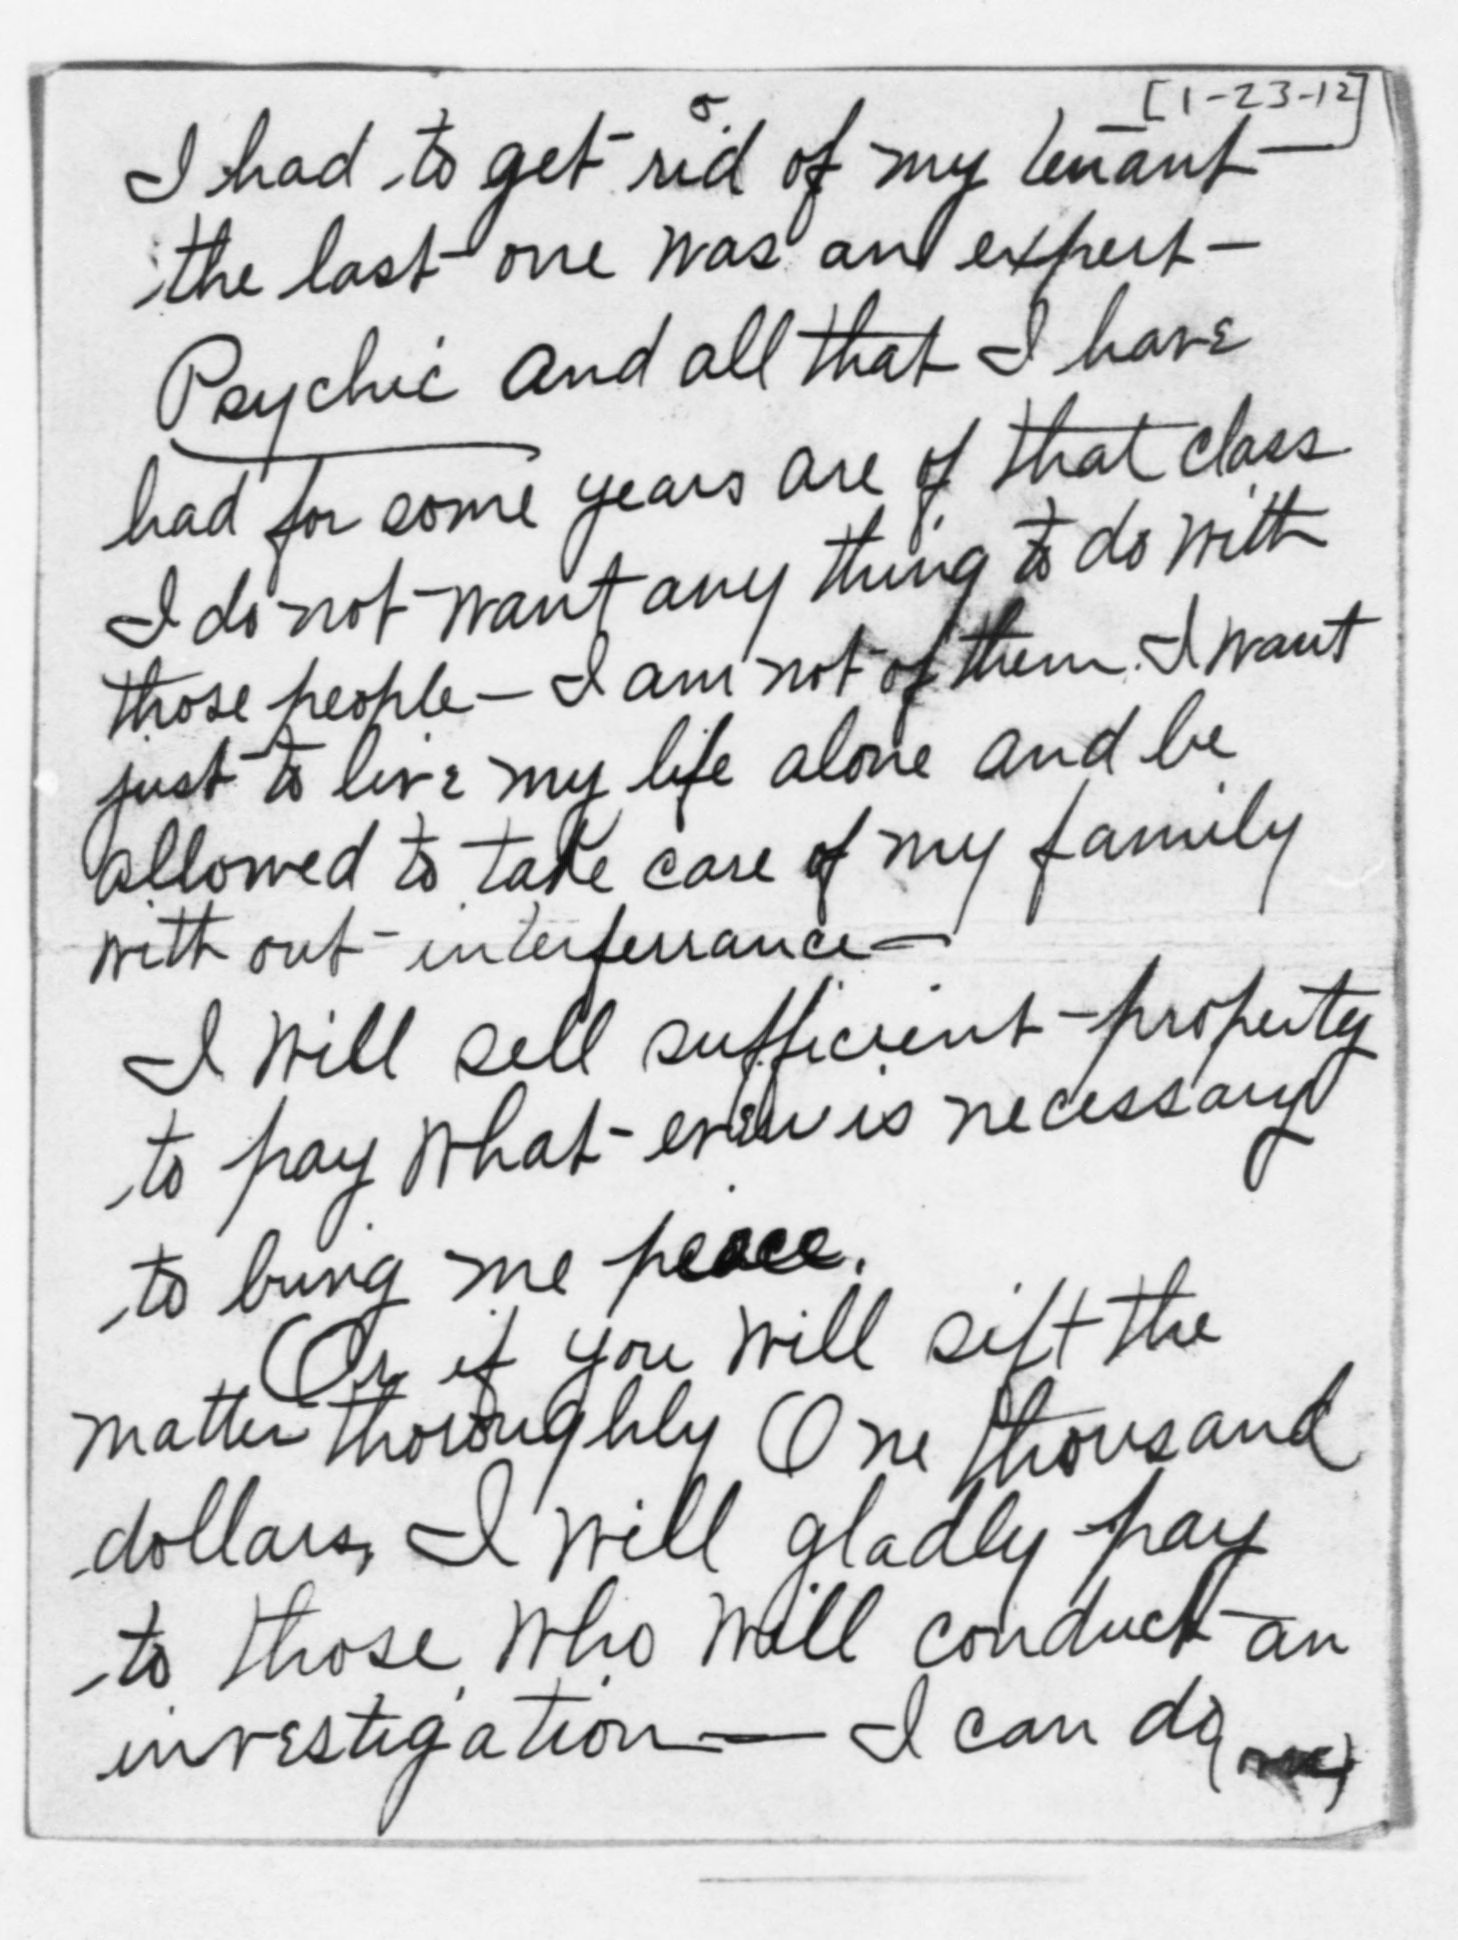 [1-23-12]
I had to get rid of my tenant —
the last one was an expert —
Psychic and all that I have
had for some years are of that class
I do not want any thing to do with
those people — I am not of them. I want
just to live my life alone and be
allowed to take care of my family
with out interferrance —
I will sell sufficient property
to pay what-ever is necessary
to bring me peace.
Or if you will sift the
matter thoroughly One thousand
dollars, I will gladly pay
to those who will conduct an
investigation — I can do